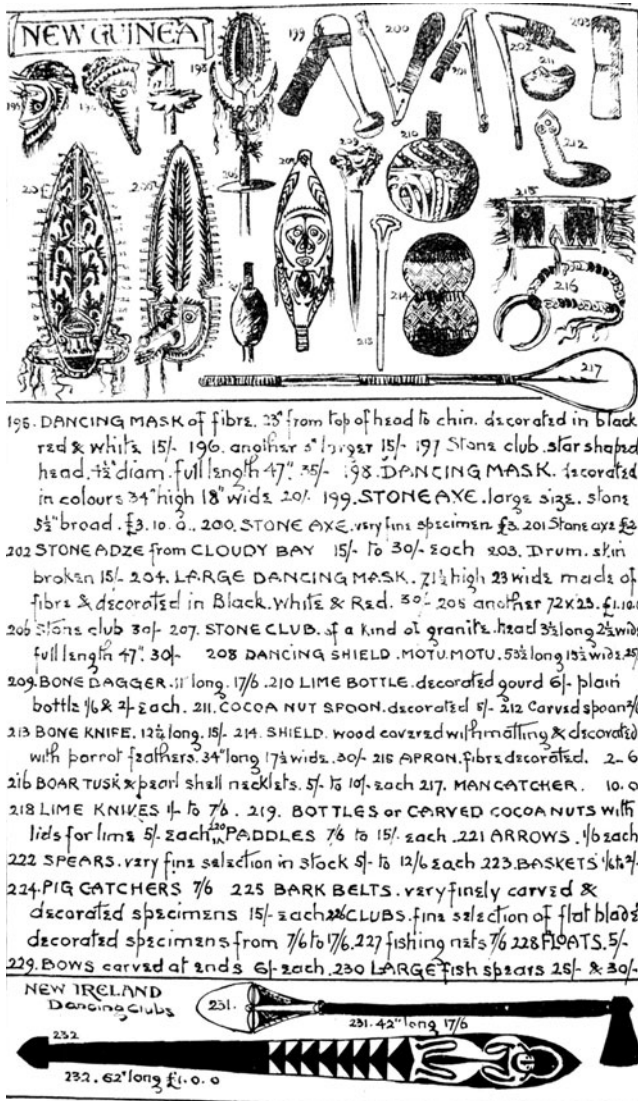 NEW GUINEA
199
200
202
203
195
196
198
201
211
210
212
209
206
208
215
216
214
213
217
195. DANCING MASK of fibre. 23" from top of head to chin. decorated in black
red & white 15/- 196. another 5" larger 15/- 197 Stone club. star shaped
head. 4½" diam. full length 47". 35/- 198. DANCING MASK. decorated
in colours 34" high 18" wide 20/. 199. STONE AXE. large size. stone
5½" broad. £3.10.0.. 200. STONE AXE. very fine specimen £3. 201 Stone axe £2
202 STONE ADZE from CLOUDY BAY 15/- to 30/- each 203. Drum. skin
broken 15/- 204. LARGE DANCING MASK. 71½ high 23 wide made of
fibre & decorated in Black. White & Red. 30/- 205 another 72 x 23. £1.10.
206 Stone club 30/- 207. STONE CLUB. of a kind of granite. head 3½ long 2½ wide
full length 47". 30/- 208 DANCING SHIELD. MOTU. MOTU. 53½ long 13½ wide. 25/
209. BONE DAGGER. 11" long. 17/6. 210 LIME BOTTLE. decorated gourd 6/- plain
bottle 1/6 & 2/- each. 211. COCOA NUT SPOON. decorated 5/- 212 Carved spoon 2/6
213 BONE KNIFE. 12½ long. 15/- 214. SHIELD. wood covered with matting & decorated
with parrot feathers. 34" long 17½ wide. 30/- 215 APRON. fibre decorated. 2-6
216 BOAR TUSK & pearl shell necklets. 5/- to 10/- each 217. MANCATCHER. 10.0
218 LIME KNIVES 1/- to 7/6. 219. BOTTLES or CARVED COCOANUTS with
lids for lime 5/- each 220 PADDLES 7/6 to 15/- each. 221 ARROWS. 1/6 each
222 SPEARS. very fine selection in stock 5/- to 12/6 each 223. BASKETS 1/6 to 2/-
224. PIG CATCHERS 7/6 225 BARK BELTS. very finely carved &
decorated specimens 15/- each 226 CLUBS. fine selection of flat blade
decorated specimens from 7/6 to 17/6. 227 fishing nets 7/6 228 FLOATS. 5/-
229. BOWS carved at ends 6/- each. 230 LARGE fish spears 25/- & 30/-
NEW IRELAND
Dancing Clubs
231.
231. 42" long 17/6
232
232. 62" long £1.0.0